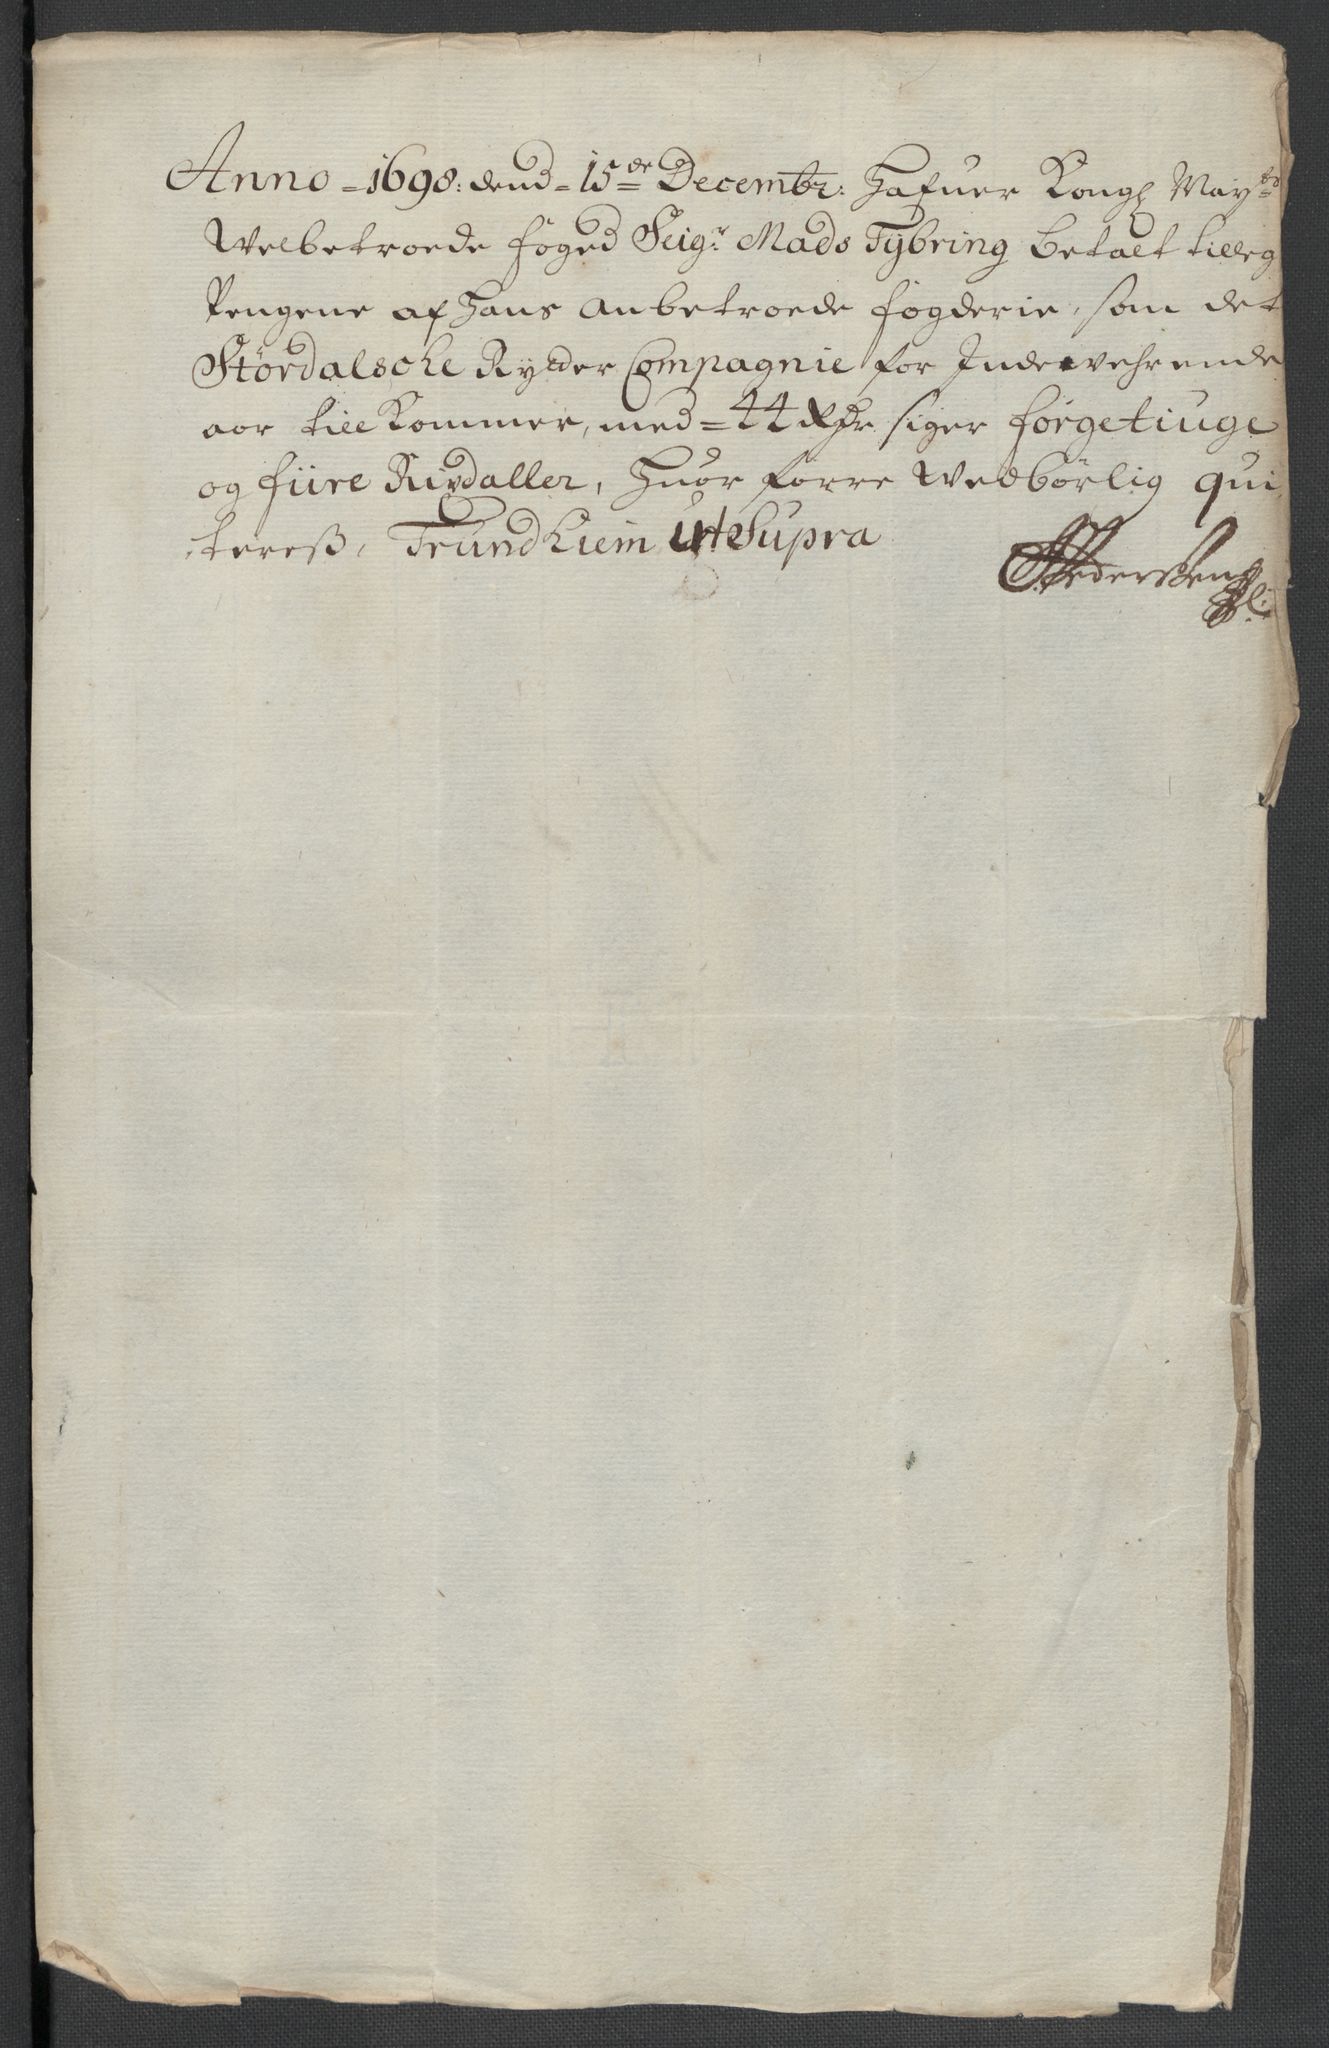 Anno = 1698: dend = 15de Decembr: Hafuer Kongl May:ts
Welbetroede foged Seigr: Mads Tybring betalt tilleg
Pengene af Hans anbetroede fogderie, som det
Stördalsche Rytter Compagnie for Indewehrende
aar till kommer, med = 44 Rdr siger förgetiuge
og fiire Rixdaller, Huor forre wedbörlig qui,
,tereß, Trundhiem ut Supra
Pederssen